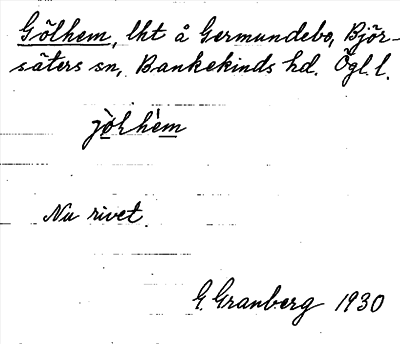 Gölhem, lht å Germundebo, Björ-
säters sn, Bankekinds hd. Ögl. l.
jòlhém
Nu rivet.
G. Granberg 1930